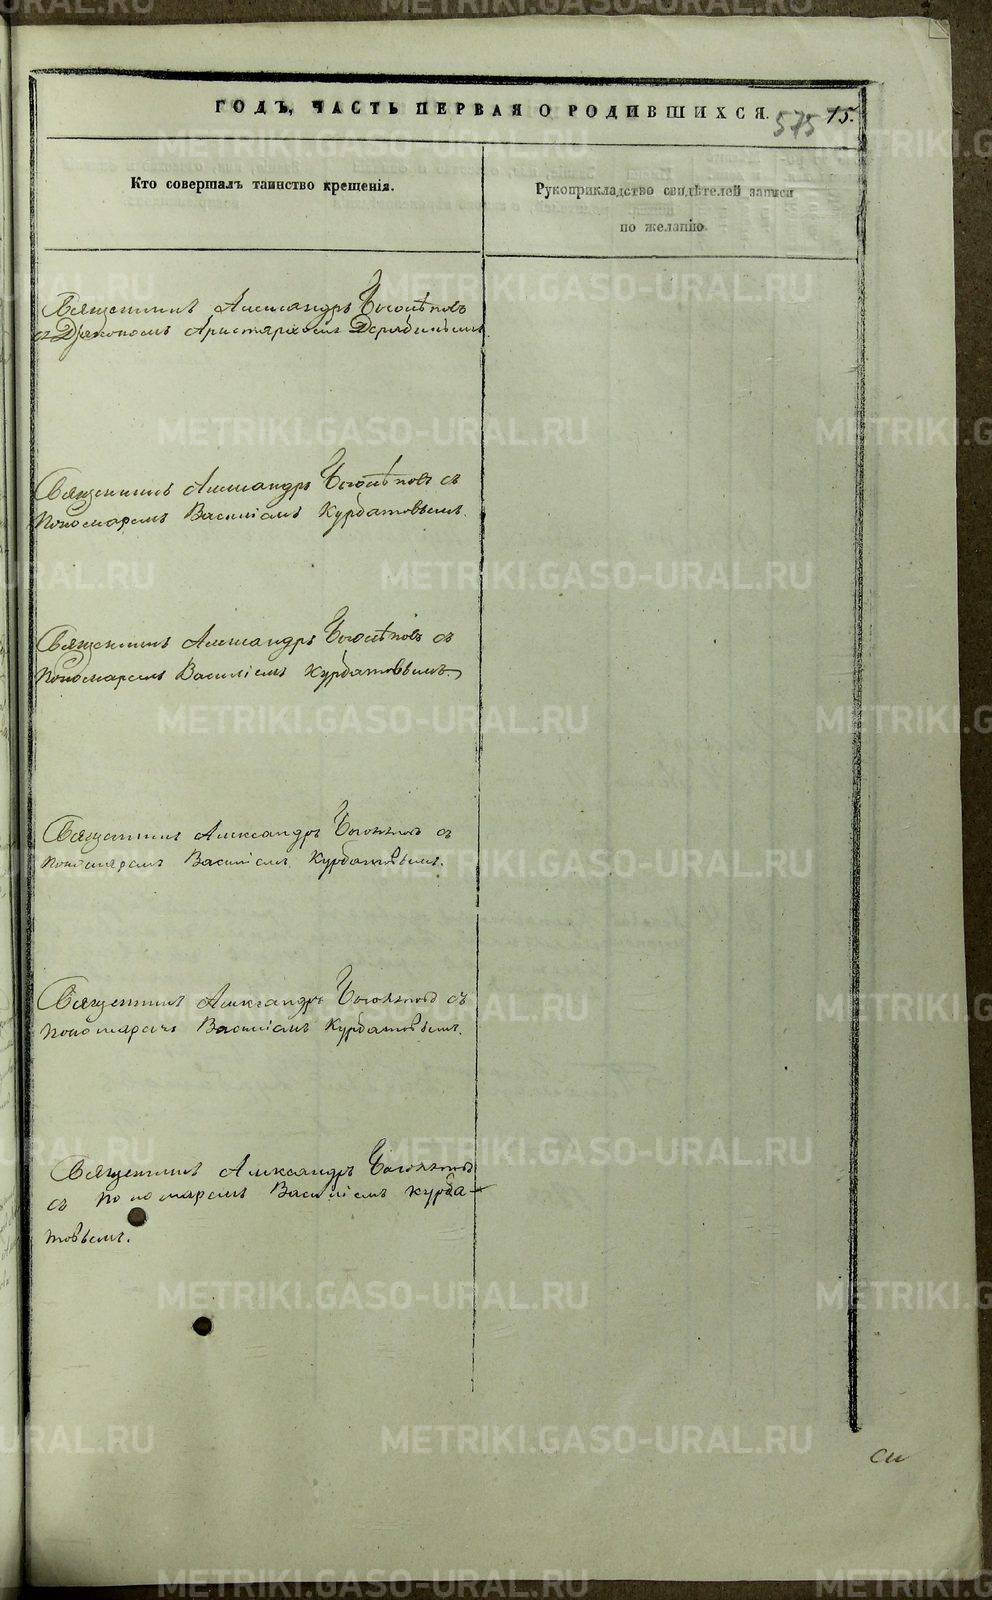 ГОДЪ, ЧАСТЬ ПЕРВАЯ О РОДИВШИХСЯ. 575 15.
Кто совершалъ таинство крещенія.
Рукоприкладство свидѣтелей записи
по желанію
Священникъ Александръ
съ Діакономъ Аристархомъ Дерябинымъ
Священникъ Александръ съ
Пономаремъ Василіемъ Курбатовымъ.
Священникъ Александръ съ
Пономаремъ Василіемъ Курбатовымъ.
Священникъ Александръ съ
Пономаремъ Василіемъ Курбатовымъ.
Священникъ Александръ съ
Пономаремъ Василіемъ Курбатовымъ.
Священникъ Александръ
съ Пономаремъ Василіемъ Курба-
товымъ.
METRIKI.GASO-URAL.RU